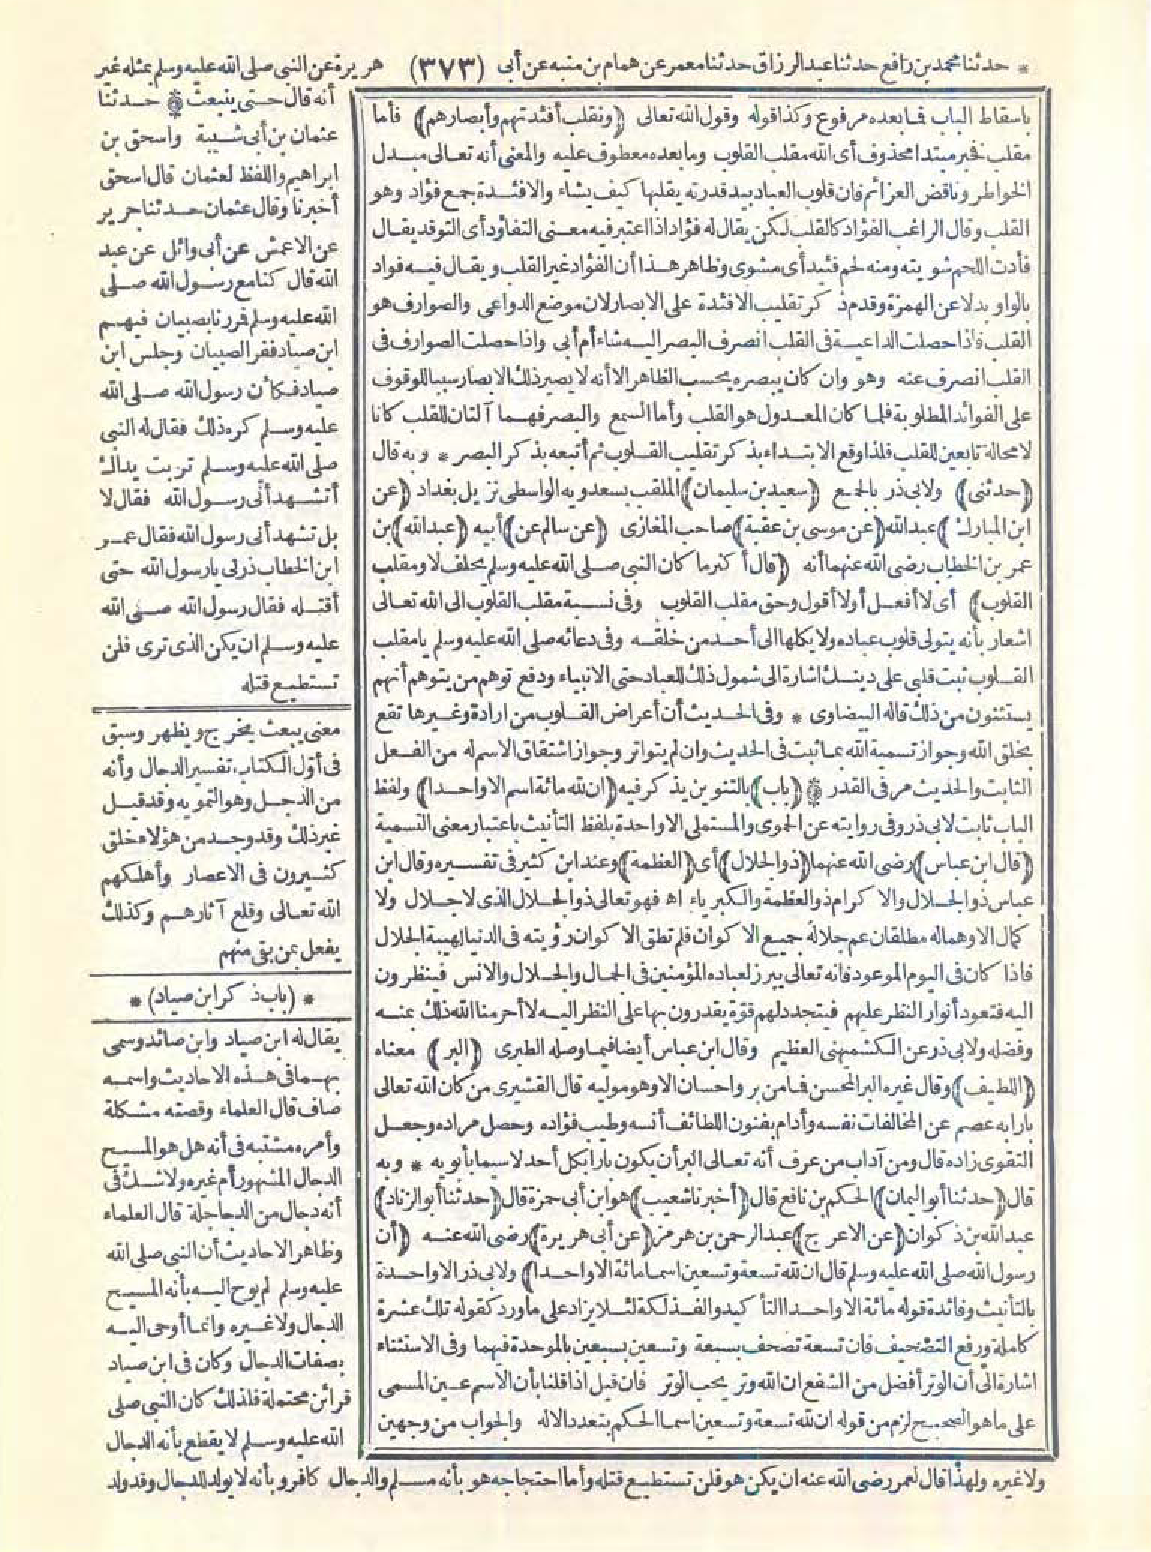 * حدثنا محمد بن رافع حدثنا عبد الرزاق حدثنا معمر عن همام بن منبه عن أبى (٣٧٣) هريرة عن النبى صلى الله عليه وسلم بمثله غير
أنه قال حتى ينبعث * حدثنا
عثمان بن أبى شيبة واسحق بن
ابراهيم واللفظ لعثمان قال اسحق
أخبرنا وقال عثمان حدثنا جرير
عن الاعمش عن أبى وائل عن عبد
الله قال كنا مع رسول الله صلى
الله عليه وسلم فمررنا بصبيان فيهم
ابن صياد ففر الصبيان وجلس ابن
صياد فكأن رسول الله صلى الله
عليه وسلم كره ذلك فقال له النبى
صلى الله عليه وسلم تربت يداك
أتشهد أنى رسول الله فقال لا
بل تشهد أنى رسول الله فقال عمر
ابن الخطاب ذرنى يارسول الله حتى
أقتله فقال رسول الله صلى الله
عليه وسلم ان يكن الذى ترى فلن
تستطيع قتله
معنى يبعث يخرج ويظهر وسبق
فى أول الكتاب تفسير الدجال وأنه
من الدجل وهو التمويه وقد قيل
غير ذلك وقد وجد من هؤلاء خلق
كثيرون فى الاعصار وأهلكهم
الله تعالى وقلع آثارهم وكذلك
يفعل بمن بقى منهم
* (باب ذكر ابن صياد) *
يقال له ابن صياد وابن صائد وسمى
بهما فى هذه الاحاديث واسمه
صاف قال العلماء وقصته مشكلة
وأمره مشتبه فى أنه هل هو المسيح
الدجال المشهور أم غيره ولا شك فى
أنه دجال من الدجاجلة قال العلماء
وظاهر الاحاديث أن النبى صلى الله
عليه وسلم لم يوح اليه بأنه المسيح
الدجال ولا غيره وانما أوحى اليه
بصفات الدجال وكان فى ابن صياد
قرائن محتملة فلذلك كان النبى صلى
الله عليه وسلم لا يقطع بأنه الدجال
باسقاط الباب فما بعده مرفوع وكذا قوله وقول الله تعالى (ونقلب أفئدتهم وأبصارهم) فأما
مقلب فخبر مبتدا محذوف أى الله مقلب القلوب وما بعده معطوف عليه والمعنى أنه تعالى مبدل
الخواطر وناقض العزائم فان قلوب العباد بيد قدرته يقلبها كيف يشاء والافئدة جمع فؤاد وهو
القلب وقال الراغب الفؤاد كالقلب لكن يقال له فؤاد اذا اعتبر فيه معنى التفاؤد أى التوقد يقال
فأدت اللحم شويته ومنه لحم فئيد أى مشوى وظاهر هذا أن الفؤاد غير القلب ويقال فيه فواد
بالواو بدلا عن الهمزة وقدم ذكر تقليب الافئدة على الابصار لان موضع الدواعى والصوارف هو
القلب فاذا حصلت الداعية فى القلب انصرف البصر اليه شاء أم أبى واذا حصلت الصوارف فى
القلب انصرف عنه وهو وان كان يبصره بحسب الظاهر الا أنه لا يصير ذلك الابصار سببا للوقوف
على الفوائد المطلوبة فلما كان المعدول هو القلب وأما السمع والبصر فهما آلتان للقلب كانا
لا محالة تابعين للقلب فلذا وقع الابتداء بذكر تقليب القلوب ثم أتبعه بذكر البصر * وبه قال
(حدثنى) ولابى ذر بالجمع (سعيد بن سليمان) الملقب بسعدويه الواسطى نزيل بغداد (عن
ابن المبارك) عبد الله (عن موسى بن عقبة) صاحب المغازى (عن سالم عن) أبيه (عبد الله) بن
عمر بن الخطاب رضى الله عنهما أنه (قال أكثر ما كان النبى صلى الله عليه وسلم يحلف لا ومقلب
القلوب) أى لا أفعل أو لا أقول وحق مقلب القلوب وفى نسبة مقلب القلوب الى الله تعالى
اشعار بأنه يتولى قلوب عباده ولا يكلها الى أحد من خلقه وفى دعائه صلى الله عليه وسلم يا مقلب
القلوب ثبت قلبى على دينك اشارة الى شمول ذلك للعباد حتى الانبياء ودفع توهم من يتوهم أنهم
يستثنون من ذلك قاله البيضاوى * وفى الحديث أن أعراض القلوب من ارادة وغيرها تقع
بخلق الله وجواز تسمية الله بما ثبت فى الحديث وان لم يتواتر وجواز اشتقاق الاسم له من الفعل
الثابت والحديث مر فى القدر * (باب) بالتنوين يذكر فيه (ان لله مائة اسم الا واحدا) ولفظ
الباب ثابت لابى ذر وفى روايته عن الحموى والمستملى الا واحدة بلفظ التأنيث باعتبار معنى التسمية
(قال ابن عباس) رضى الله عنهما (ذو الجلال) أى (العظمة) وعند ابن كثير فى تفسيره وقال ابن
عباس ذو الجلال والاكرام ذو العظمة والكبرياء اه فهو تعالى ذو الجلال الذى لا جلال ولا
كمال الا وهما له مطلقان عم جلاله جميع الاكوان فلم تطق الاكوان رؤيته فى الدنيا لهيبة الجلال
فاذا كان فى اليوم الموعود فانه تعالى يبرز لعباده المؤمنين فى الجمال والجلال والانس فينظرون
اليه فتعود أنوار النظر عليهم فيتجدد لهم قوة يقدرون بها على النظر اليه لا أحرمنا الله ذلك بمنه
وفضله ولابى ذر عن الكشميهنى العظيم وقال ابن عباس أيضا فيما وصله الطبرى (البر) معناه
(اللطيف) وقال غيره البر المحسن فما من بر واحسان الا وهو موليه قال القشيرى من كان الله تعالى
بارا به عصم عن المخالفات نفسه وأدام بفنون اللطائف أنسه وطيب فؤاده وحصل مراده وجعل
التقوى زاده قال ومن آداب من عرف أنه تعالى البر أن يكون بارا بكل أحد لا سيما بأبويه * وبه
قال (حدثنا أبو اليمان) الحكم بن نافع قال (أخبرنا شعيب) هو ابن أبى حمزة قال (حدثنا أبو الزناد)
عبد الله بن ذكوان (عن الاعرج) عبد الرحمن بن هرمز (عن أبى هريرة) رضى الله عنه (أن
رسول الله صلى الله عليه وسلم قال ان لله تسعة وتسعين اسما مائة الا واحدا) ولابى ذر الا واحدة
بالتأنيث وفائدة قوله مائة الا واحدا التأكيد والفذلكة لئلا يزاد على ما ورد كقوله تلك عشرة
كاملة ورفع التصحيف فان تسعة تصحف بسبعة وتسعين بسبعين بالموحدة فيهما وفى الاستثناء
اشارة الى أن الوتر أفضل من الشفع ان الله وتر يحب الوتر فان قيل اذا قلنا بأن الاسم عين المسمى
على ما هو الصحيح لزم من قوله ان لله تسعة وتسعين اسما الحكم بتعدد الاله والجواب من وجهين
ولا غيره ولهذا قال لعمر رضى الله عنه ان يكن هو فلن تستطيع قتله وأما احتجاجه هو بأنه مسلم والدجال كافر وبأنه لا يولد للدجال وقد ولد